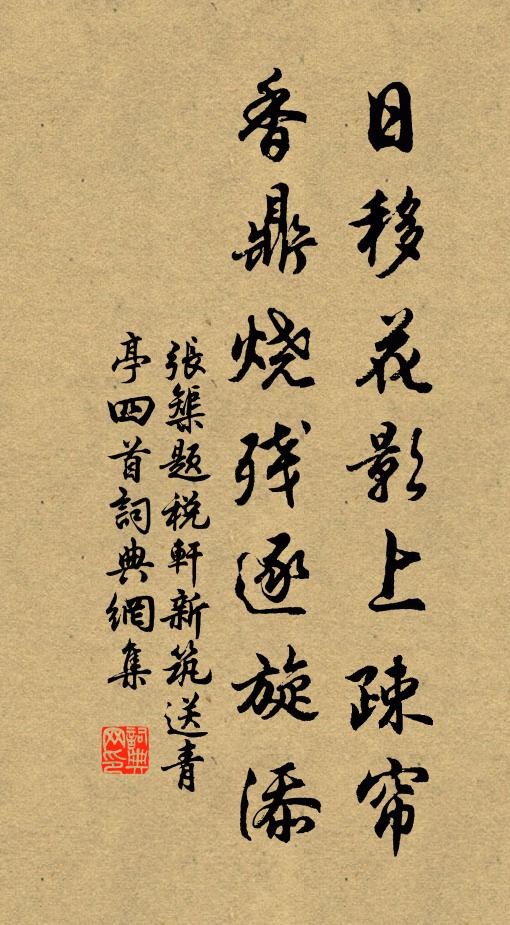 日移花影上疎帘
香鼎烧残逐旋添
張榘題税軒新筑送青
亭四首詞典網集
詞典网印